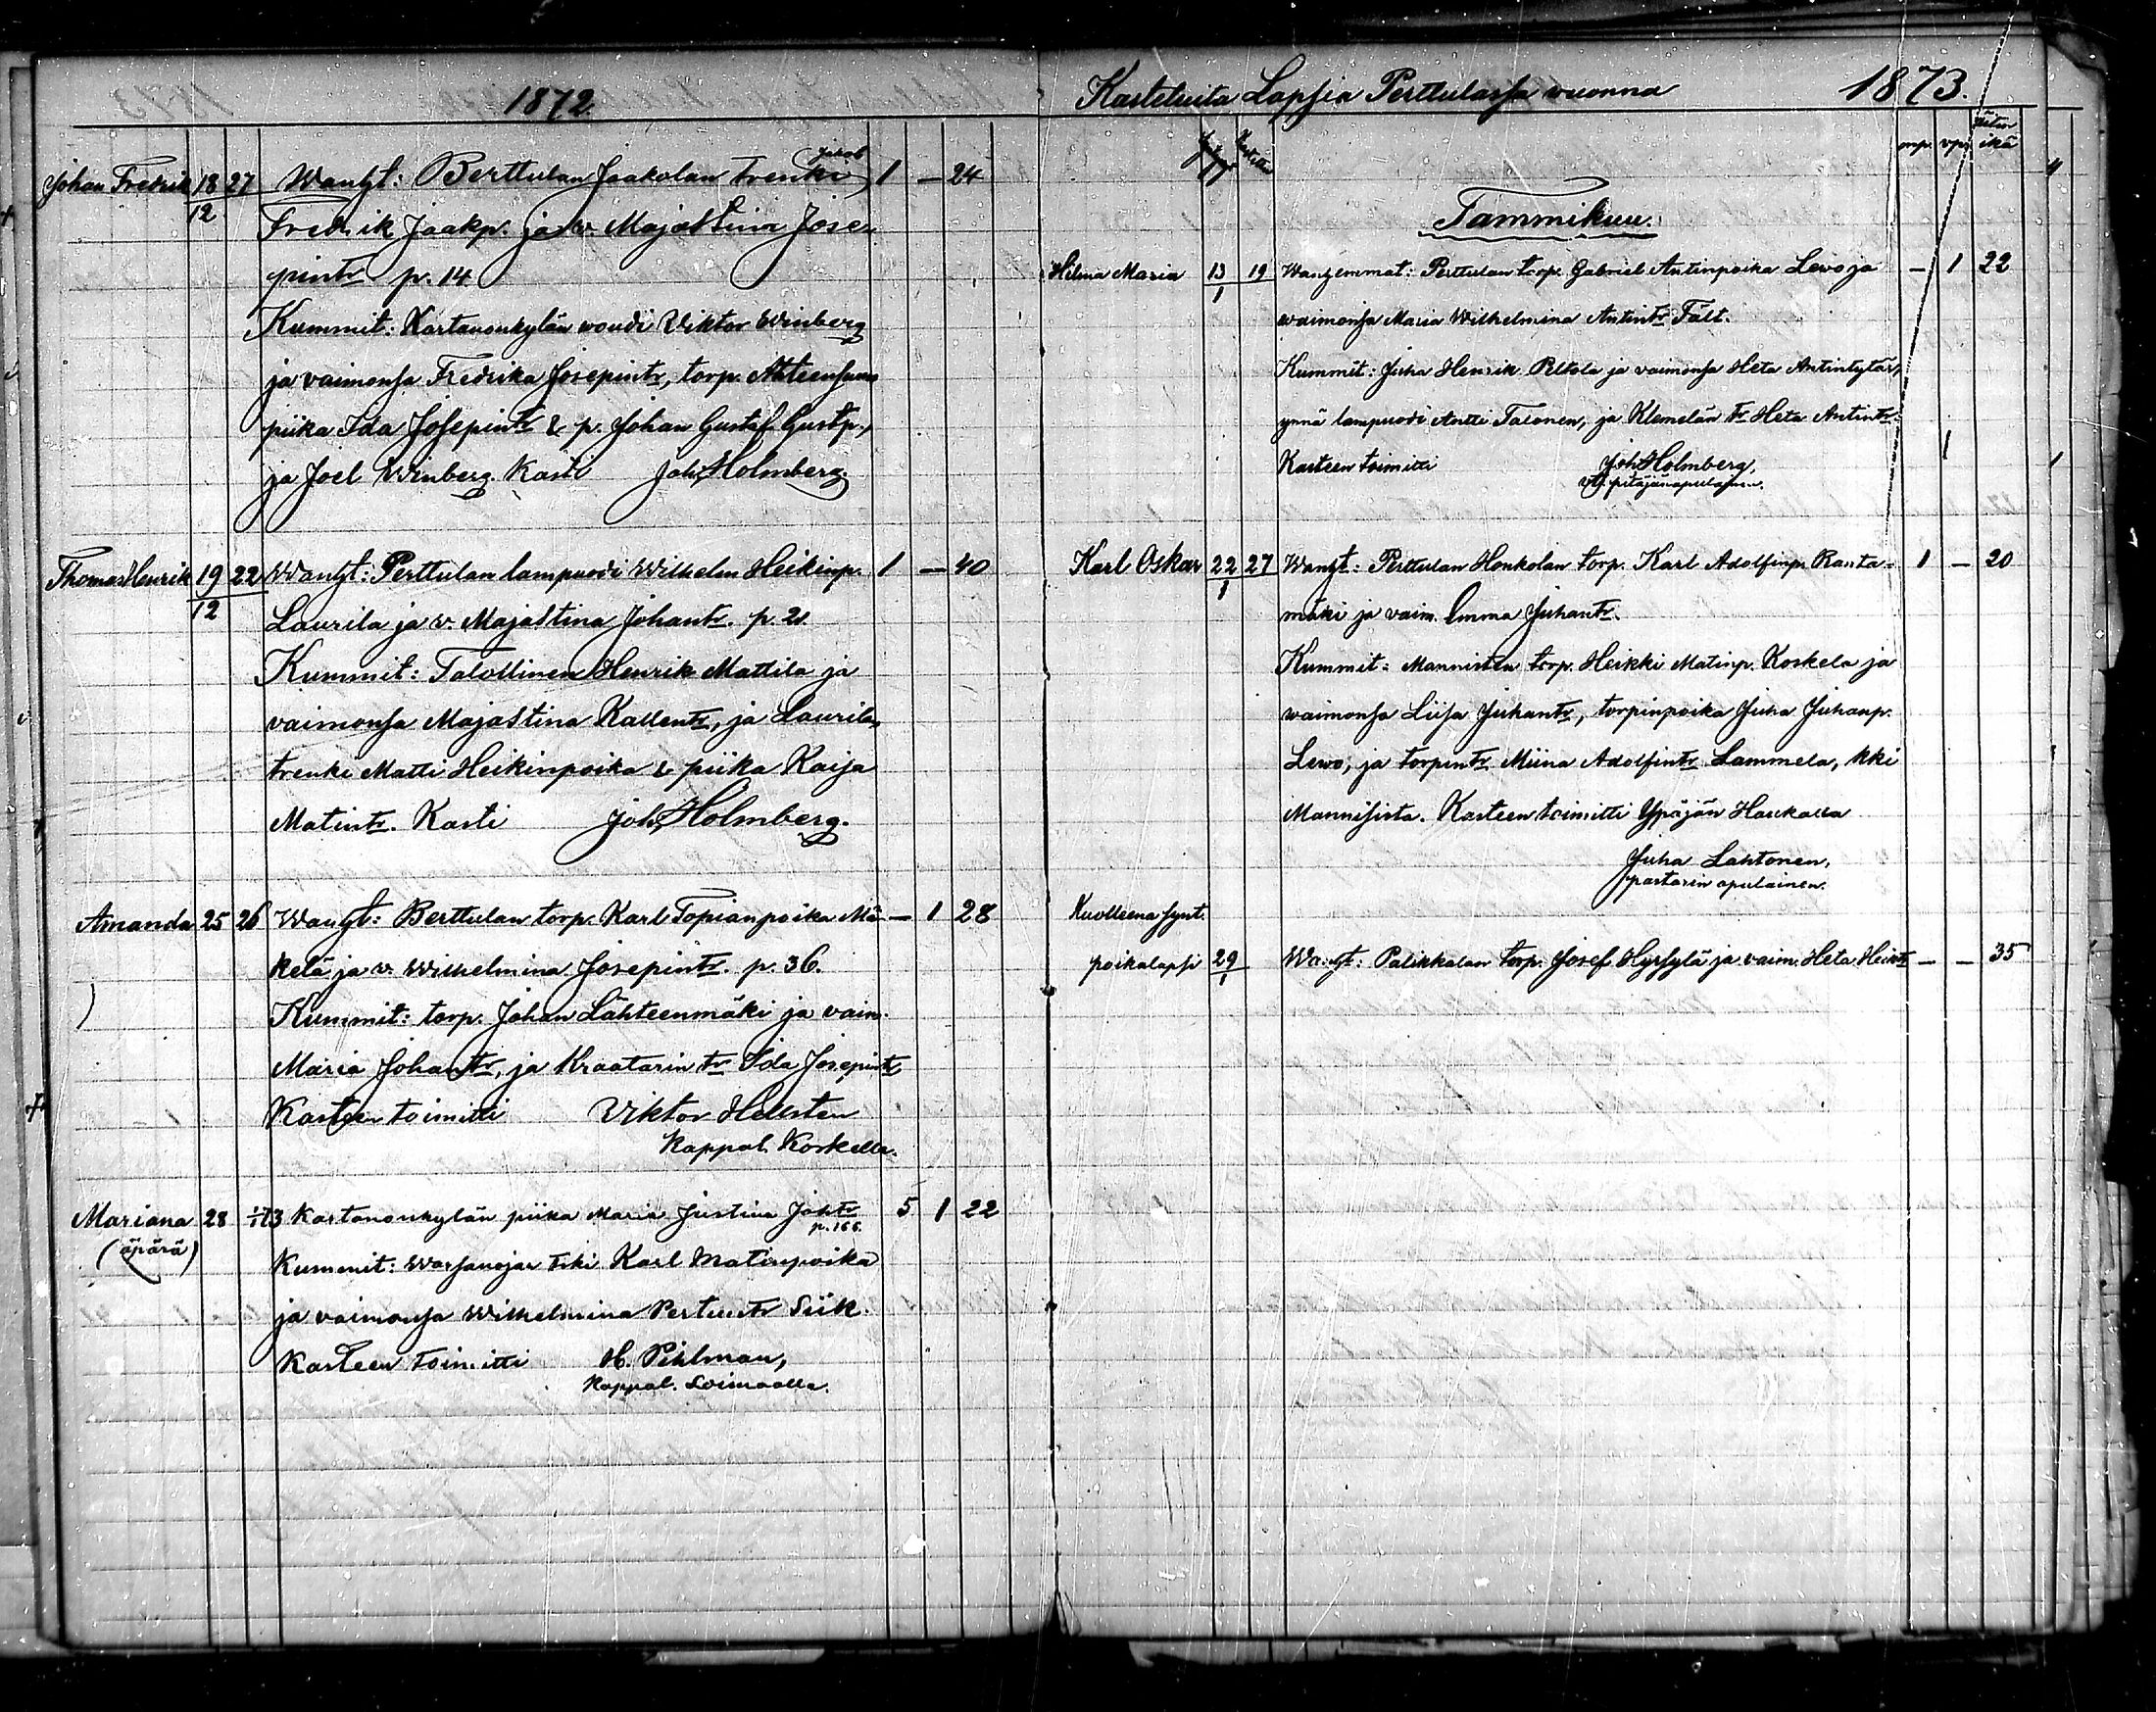 1872.
Johan Fredrik 18 27 Wanht: Berttulan Jaakolan trenki Jakob 1 — 24
12 Fredrik Jaakp. ja v. Majastina Jose-
pintr p. 14
Kummit: Kartanonkylän woudi Viktor Winberg
ja vaimonsa Fredrika Josepintr, torp.
piika Ida Josepintr & p. Johan Gustaf Gustp.,
ja Joel Winberg. Kasti Joh. Holmberg.
Thomas Henrik 19 22 Wanht: Perttulan lampuodi Wilhelm Heikinp. 1 — 40
12 Laurila ja v. Majastina Johantr. p. 21
Kummit: Talollinen Henrik Mattila ja
vaimonsa Majastina Kallentr, ja Laurilan
trenki Matti Heikinpoika & piika Kaisa
Matintr. Kasti Joh. Holmberg.
Amanda 25 26 Wanht: Berttulan torp. Karl Topianpoika Mä- — 1 28
kelä ja v. Wilhelmina Josepintr. p. 36.
Kummit: torp. Johan Lähteenmäki ja vaim.
Maria Johantr, ja Kraatarin tr Ida Josepintr
Kasteen toimitti Viktor Hellsten
Kappal. Koskella.
Mariana 28 1/1 73 Kartanonkylän piika Maria Justina Johtr 5 1 22
p. 166.
(äpärä)
Kummit: Warsanojan trki Karl Matinpoika
ja vaimonsa Wilhelmina Pertuntr Siik.
Kasteen toimitti H. Pihlman,
Kappal. Loimaalla.
Kasteluita Lapsia Perttulassa wuonna 1873.
mp. vp. äitin ikä
Tammikuu.
Hilma Maria 13 19 Wanhemmat: Perttulan torp. Gabriel Antinpoika Lewo ja — 1 22
1 waimonsa Maria Wilhelmina Antintr Fält.
Kummit: Juha Henrik Peltola ja vaimonsa Heta Antintytär,
ynnä lampuodi Antti Talonen, ja Klemelän tr Heta Antintr.
Kasteen toimitti Joh. Holmberg,
vt. pitäjänapulainen.
Karl Oskar 22 27 Wanht: Perttulan Honkolan torp. Karl Adolfinp. Ranta- 1 — 20
1 mäki ja vaim. Emma Juhantr.
Kummit: Mannisten torp. Heikki Matinp. Koskela ja
waimonsa Liisa Juhantr, torpinpoika Juha Juhanp.
Lewo, ja torpintr Miina Adolfintr Lammela, kki
Mannisista. Kasteen toimitti Ypäjän Haukalla
Juha Lahtonen,
pastorin apulainen.
Kuolleena synt.
poikalapsi 29 Wanht: Palikkalan torp. Josef Hyrsylä ja vaim. Heta Heikintr — — 35
1